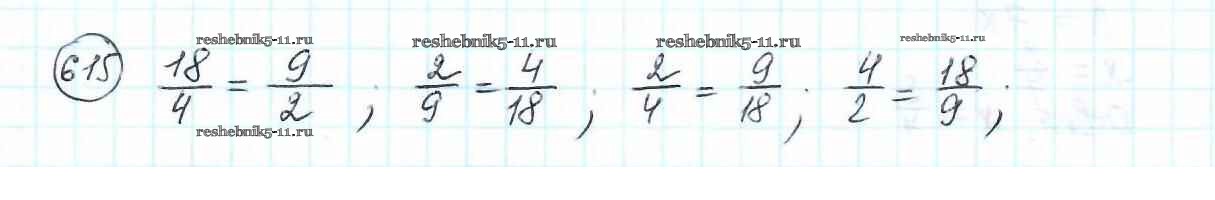 reshebnik5-11.ru reshebnik5-11.ru reshebnik5-11.ru reshebnik5-11.ru
615 18/4 = 9/2 ; 2/9 = 4/18 ; 2/4 = 9/18 ; 4/2 = 18/9 ;
reshebnik5-11.ru